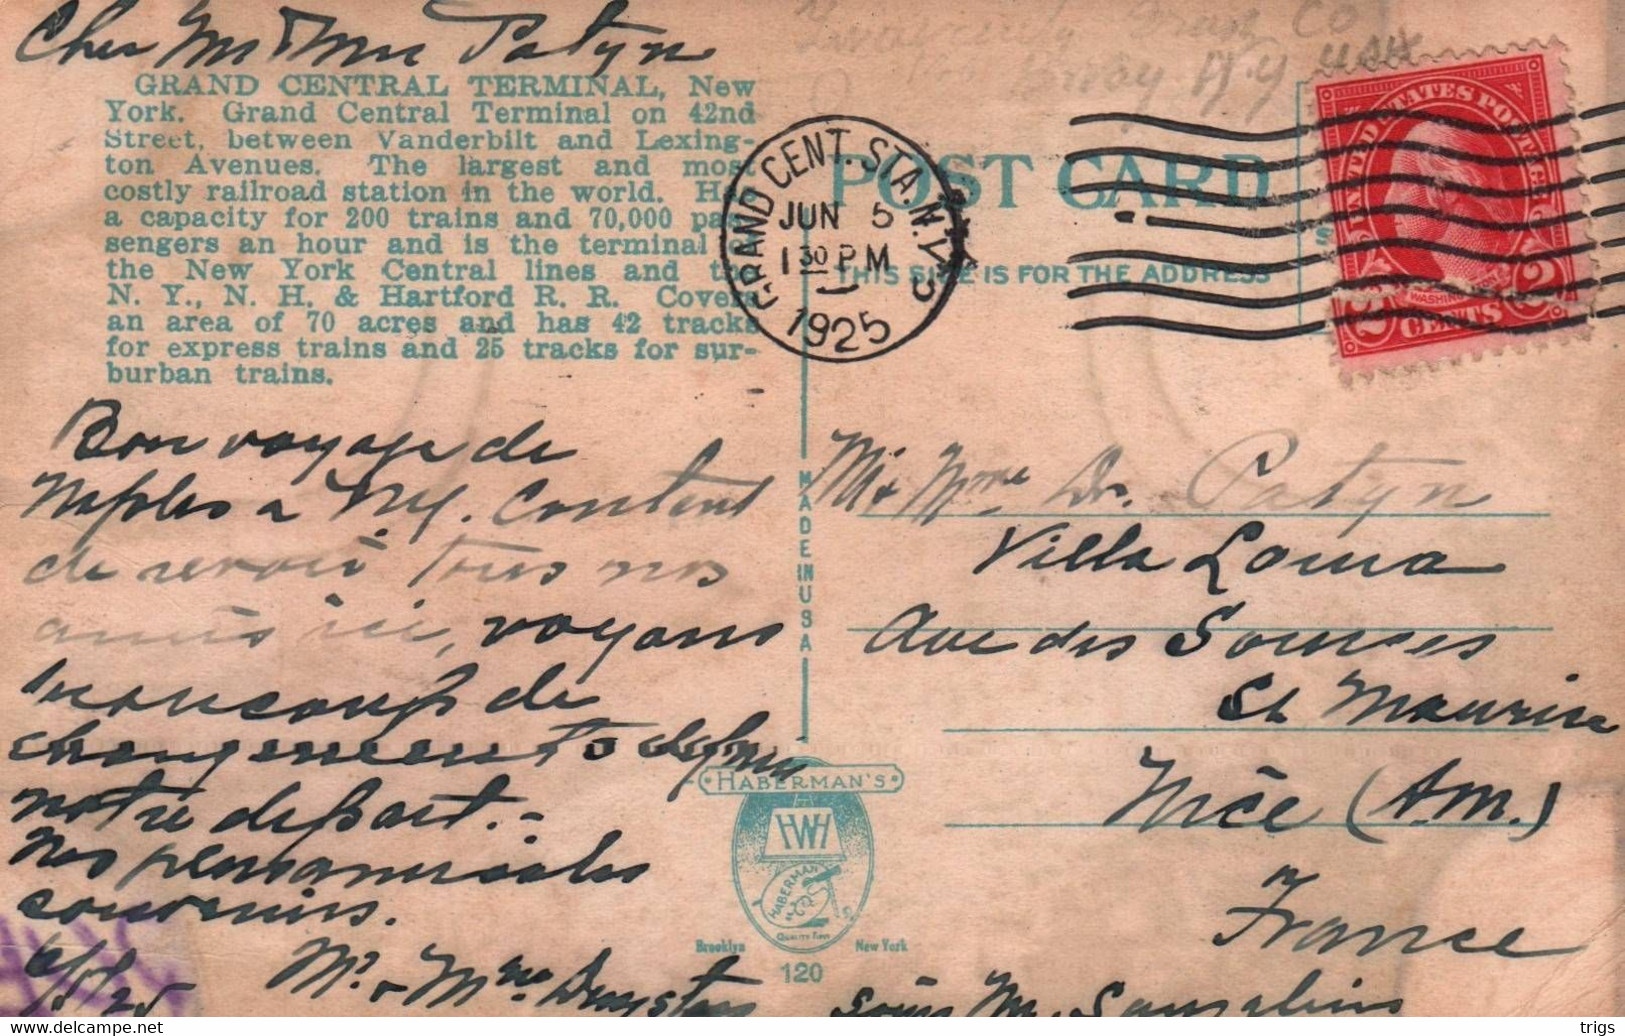 Cher Mr & Mme Patyn
Trust Co
Bway N.Y USA
GRAND CENTRAL TERMINAL, New
York. Grand Central Terminal on 42nd
Street, between Vanderbilt and Lexing-
ton Avenues. The largest and most
costly railroad station in the world. Has
a capacity for 200 trains and 70,000 pas-
sengers an hour and is the terminal of
the New York Central lines and the
N. Y., N. H. & Hartford R. R. Covers
an area of 70 acres and has 42 tracks
for express trains and 25 tracks for sur-
burban trains.
GRAND CENT. STA. N.Y.
JUN 5
1 30 PM
1925
POST CARD
THIS SIDE IS FOR THE ADDRESS
UNITED STATES POSTAGE
WASHINGTON
2 CENTS 2
Bon voyage de
Naples a N.Y. Content
de revoir tous nos
amis ici, voyons
beaucoup de
changements depuis
notre depart.-
Nos
souvenirs.
6/5/25 Mr. & Mme
MADE IN USA
Mr & Mme Dr. Patyn
Villa Loma
Ave des Sources
St Maurice
Nice (A.M.)
France
HABERMAN'S
HABERMAN
Brooklyn New York
120
trigs